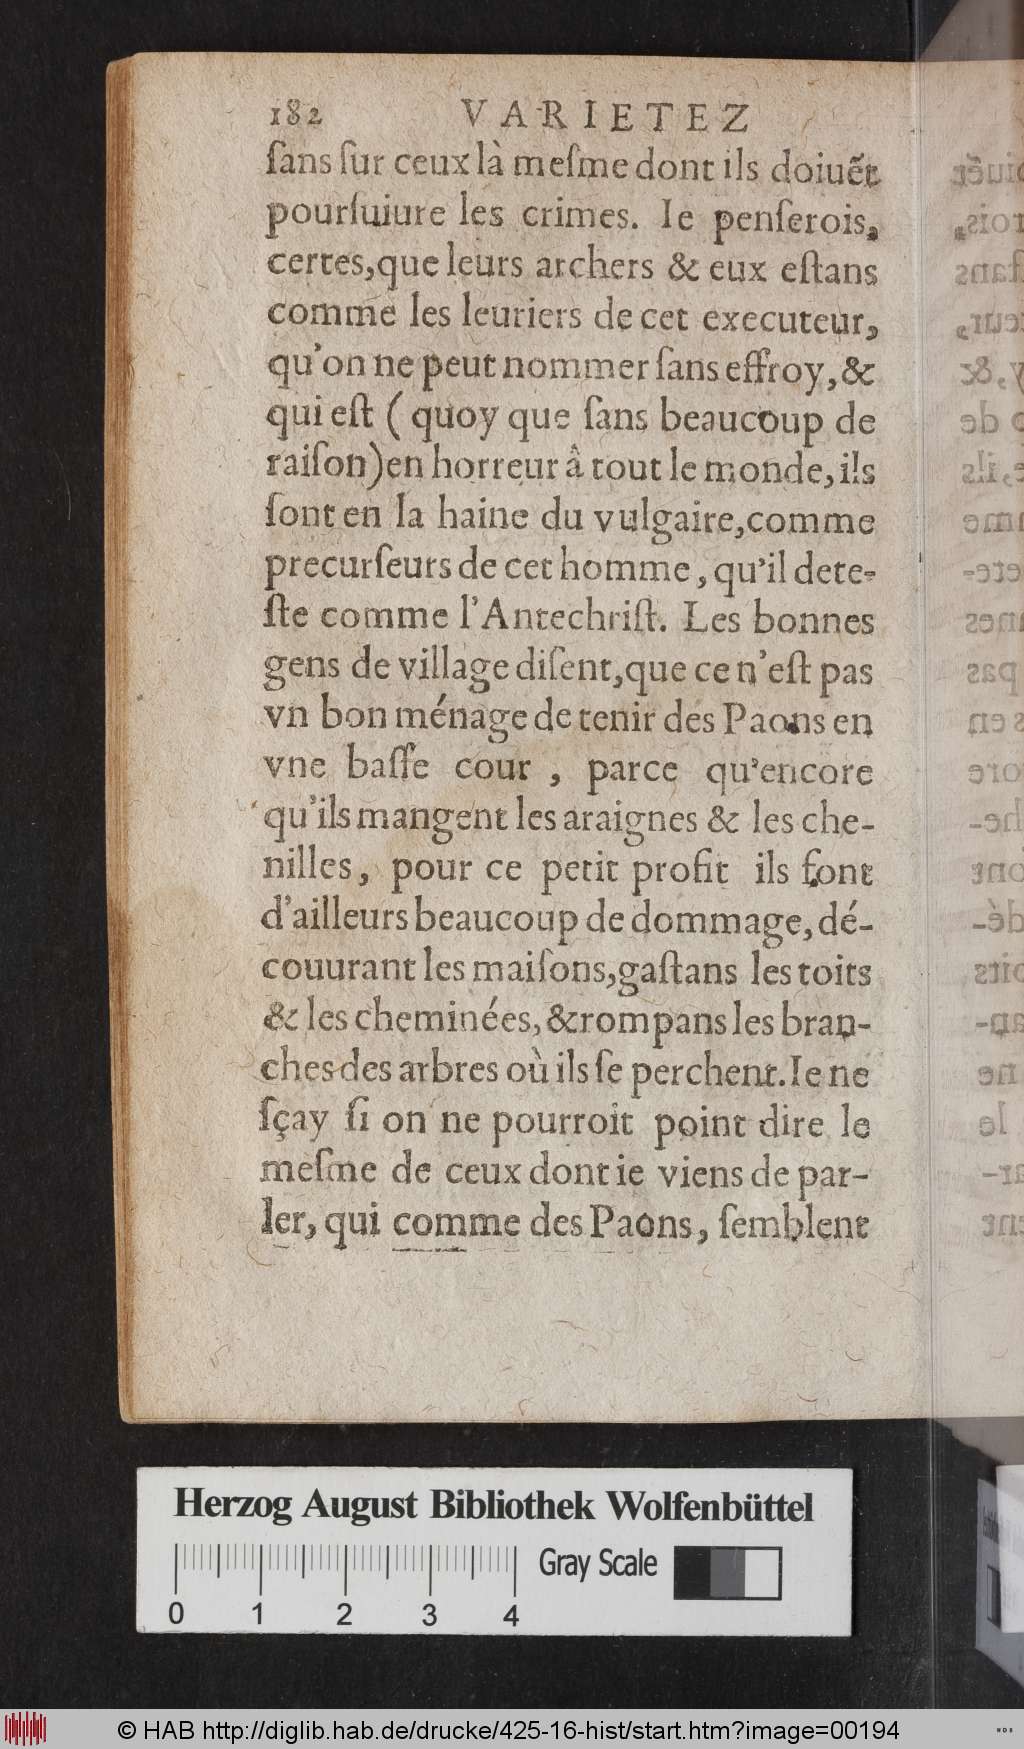 182 VARIETEZ
ſans ſur ceux là meſme dont ils doiuẽt
pourſuiure les crimes. Ie penſerois,
certes,que leurs archers & eux eſtans
comme les leuriers de cet executeur,
qu'on ne peut nommer ſans effroy, &
qui eſt ( quoy que ſans beaucoup de
raiſon)en horreur â tout le monde, ils
ſont en la haine du vulgaire,comme
precurſeurs de cet homme, qu'il dete-
ſte comme l'Antechriſt. Les bonnes
gens de village diſent,que ce n'eſt pas
vn bon ménage de tenir des Paons en
vne baſſe cour , parce qu'encore
qu'ils mangent les araignes & les che-
nilles, pour ce petit profit ils font
d'ailleurs beaucoup de dommage, dé-
couurant les maiſons,gaſtans les toits
& les cheminées, & rompans les bran-
ches des arbres où ils ſe perchent. Ie ne
ſçay ſi on ne pourroit point dire le
meſme de ceux dont ie viens de par-
ler, qui comme des Paons, ſemblent
Herzog August Bibliothek Wolfenbüttel
Gray Scale
0 1 2 3 4
© HAB http://diglib.hab.de/drucke/425-16-hist/start.htm?image=00194